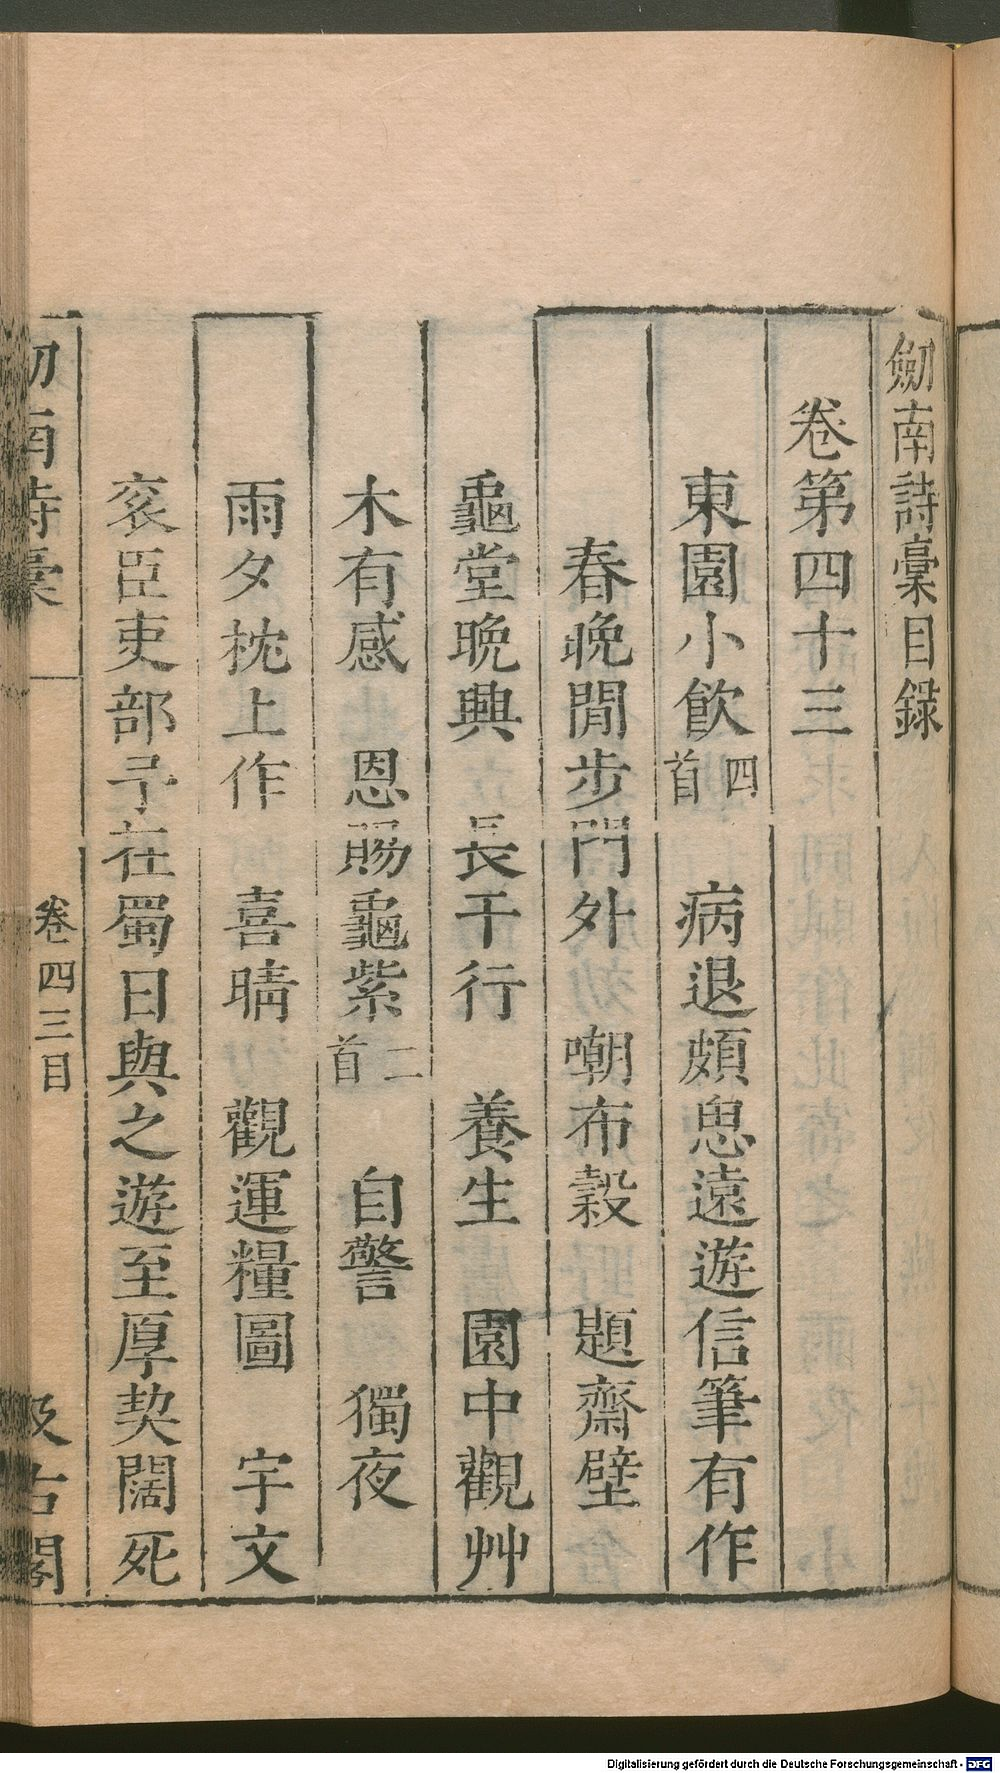 劒南詩稾目錄
卷第四十三
東園小飲四首 病退頗思遠遊信筆有作
春晚閒步門外 嘲布穀 題齋壁
龜堂晩興 長干行 養生 園中觀艸
木有感 恩賜龜紫二首 自警 獨夜
雨夕枕上作 喜晴 觀運糧圖 宇文
衮臣吏部予在蜀日與之遊至厚契闊死
劒南詩稾 卷四三目 汲古閣
Digitalisierung gefördert durch die Deutsche Forschungsgemeinschaft - DFG